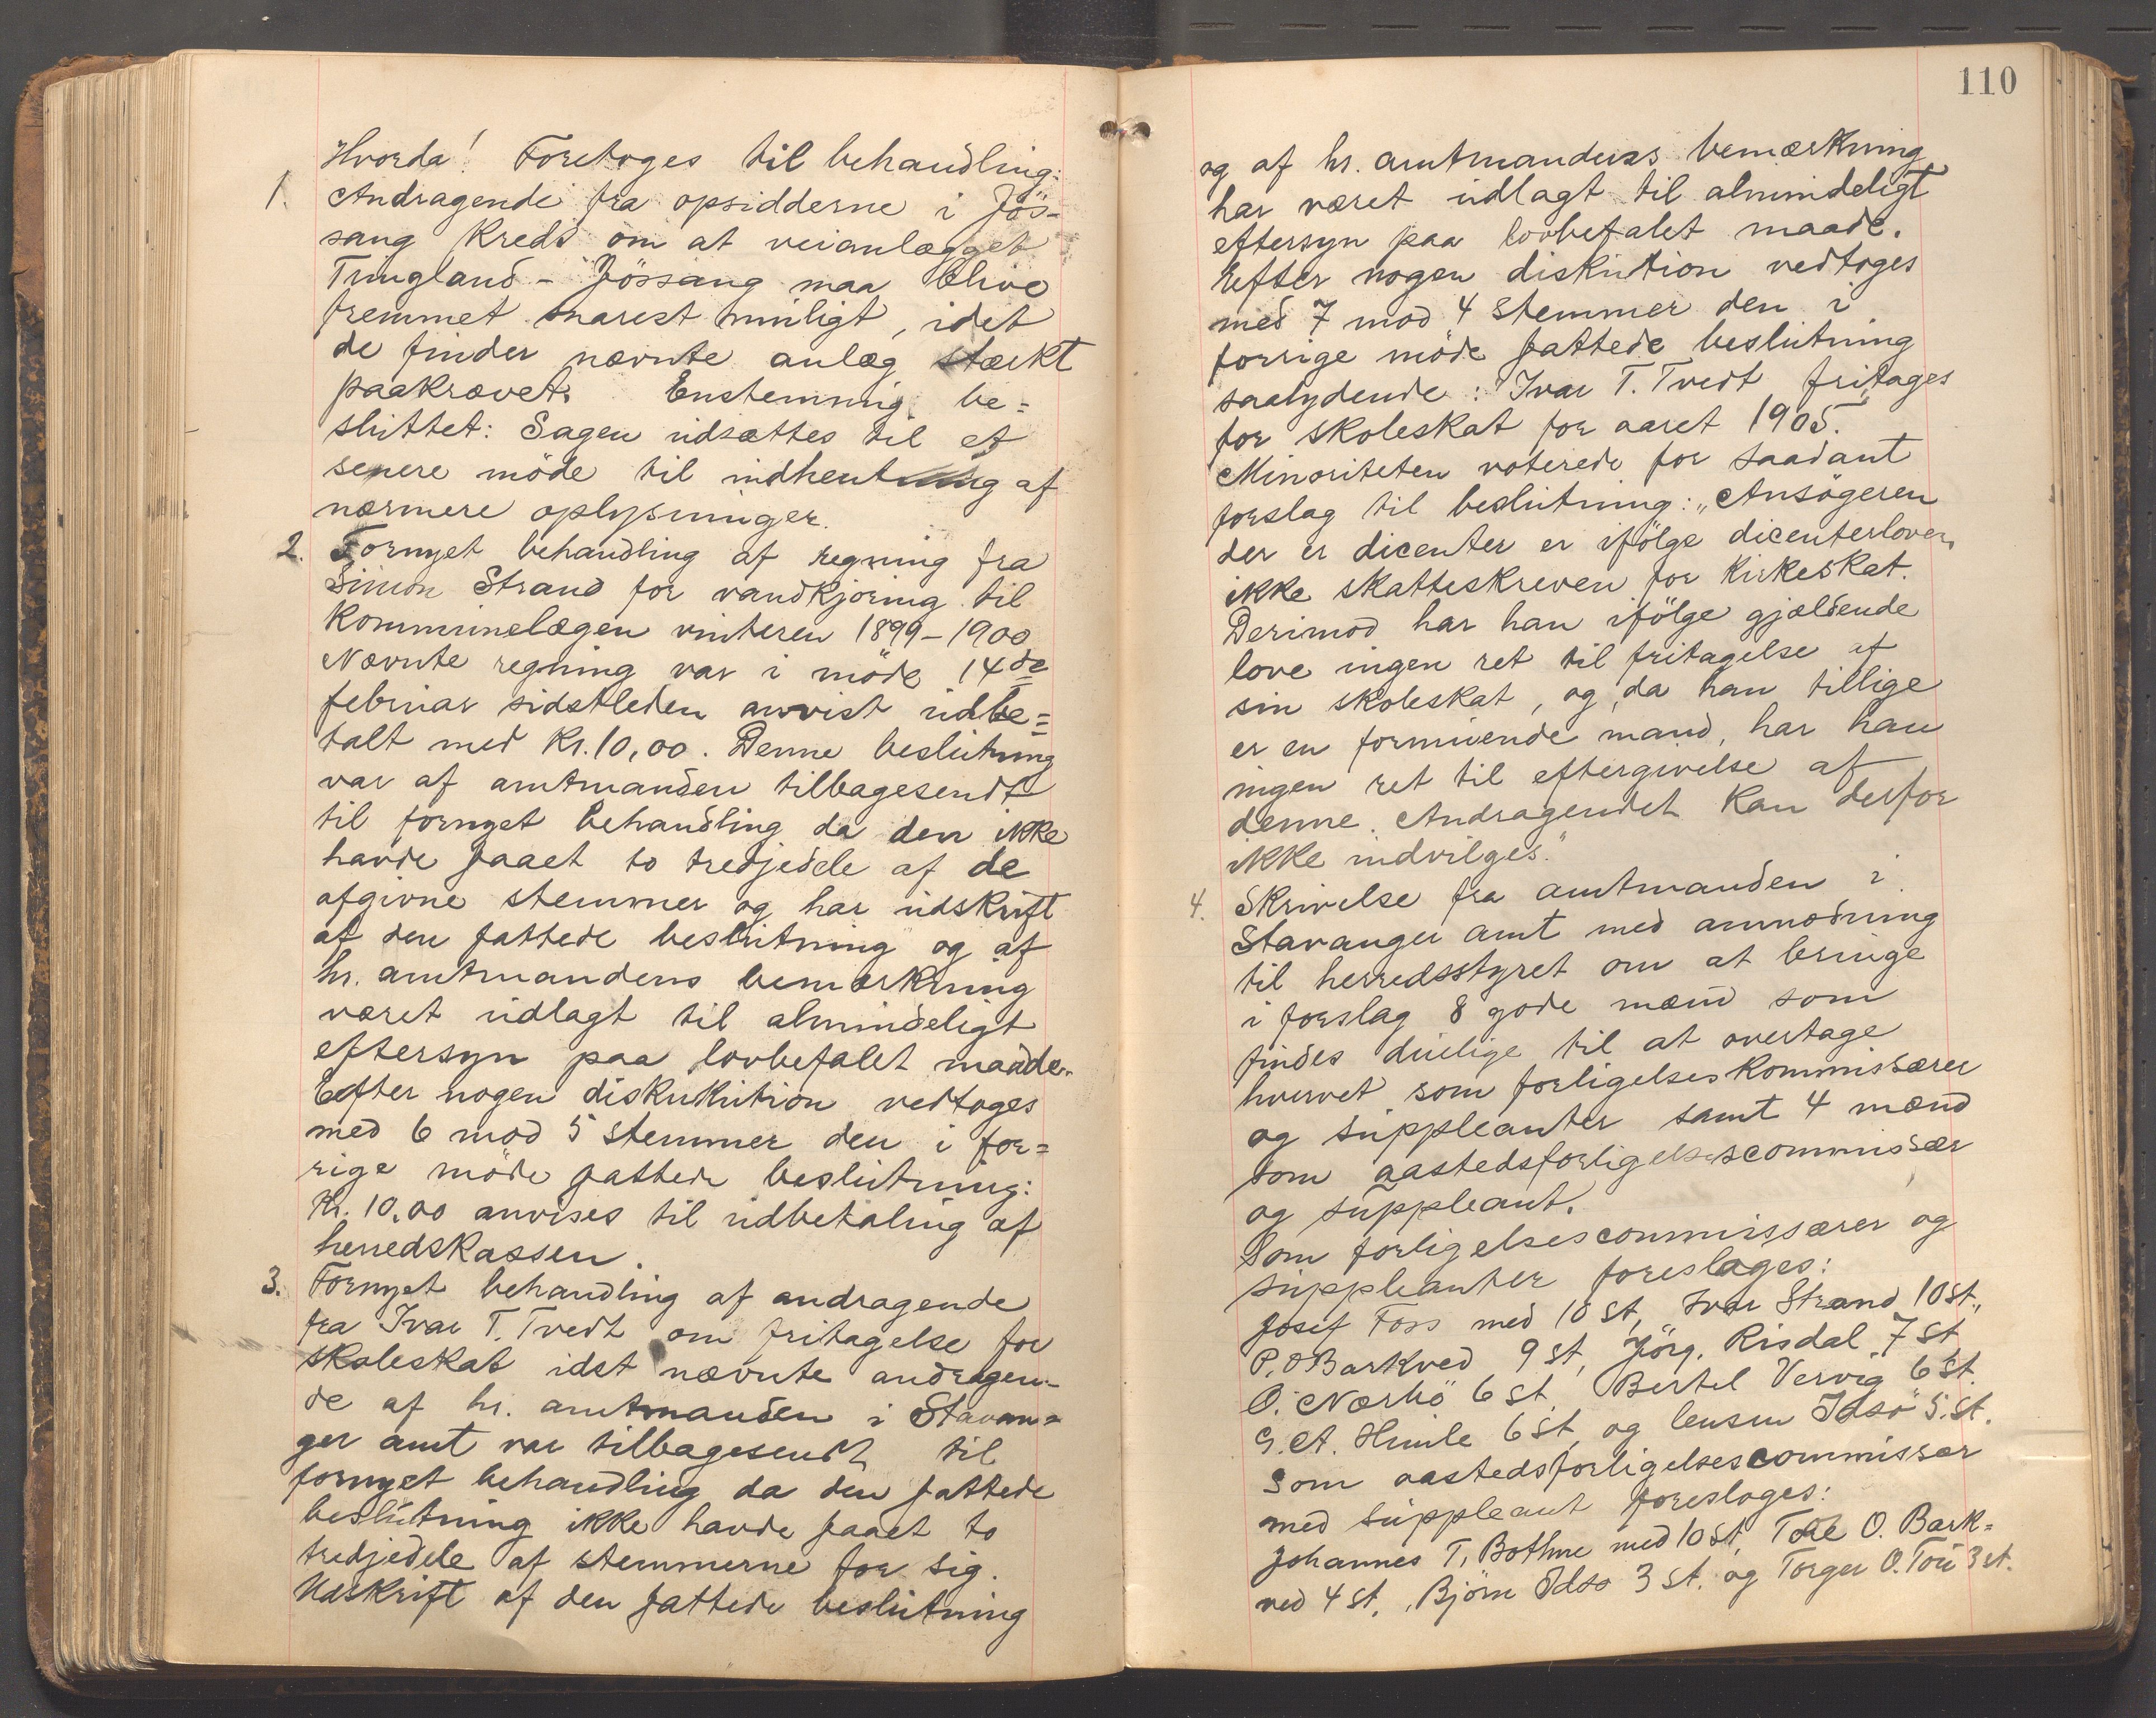 Hvorda! Foretoges til behandling:
1. Andragende fra opsidderne i Jös-
sang Kreds om at veianlægget
Tungland - Jössang maa blive
fremmet snarest muligt, idet
de finder nævnte anlæg stærkt
paakrævet. Enstemmig be=
sluttet: Sagen udsættes til et
senere möde til indhentning af
nærmere oplysninger.
2. Fornyet behandling af regning fra
Simon Strand for vandkjöring til
Kommunelægen vinteren 1899-1900
Nævnte regning var i möde 14de
februar sidstleden anvist udbe=
talt med Kr. 10,00. Denne beslutning
var af amtmanden tilbagesendt
til fornyet behandling da den ikke
havde faaet to tredjedele af de
afgivne stemmer og har udskrift
af den fattede beslutning og af
hr. amtmandens bemærkning
været udlagt til almindeligt
eftersyn paa lovbefalet maade.
Eefter nogen diskukution vedtoges
med 6 mod 5 stemmer den i for=
rige möde fattede beslutning:
Kr. 10,00 anvises til udbetaling af
herredskassen.
3. Fornyet behandling af andragende
fra Ivar T. Tvedt om fritagelse for
skoleskat idet nævnte andragen-
de af hr. amtmanden i Stavan=
ger amt var tilbagesendt til
fornyet behandling da den fattede
beslutning ikke havde faaet to
tredjedele af stemmerne for sig.
Udskrift af den fattede beslutning
110
og af hr. amtmandens bemærkning
har været udlagt til almindeligt
eftersyn paa lovbefalet maade.
Eefter nogen diskution vedtoges
med 7 mod 4 stemmer den i
forrige möde fattede beslutning
saalydende: Ivar T. Tvedt fritages
for skoleskat for aaret 1905.
Minoriteten voterede for saadant
forslag til beslutning: „Ansögeren
der er dicenter er ifölge dicenterloven
ikke skatteskreven for Kirkeskat.
Derimod har han ifölge gjældende
love ingen ret til fritagelse af
sin skoleskat, og da han tillige
er en formuende mand, har han
ingen ret til eftergivelse af
denne. Andragendet kan derfor
ikke indvilges."
4. Skrivelse fra amtmanden i
Stavanger amt med anmodning
til herredsstyret om at bringe
i forslag 8 gode mænd som
findes duelige til at overtage
hvervet som forligelseskommissærer
og suppleanter samt 4 mænd
som aastedsforligelsescommissær
og suppleant.
Som forligelsescommissærer og
suppleanter foreslages:
Josef Foss med 10 st, Ivar Strand 10 st.,
P. O Barkved 9 st, Jörg. Risdal 7 st
O. Nærbö 6 st. Bertel Vervig 6 st.
G. A. Humle 6 st, og lensm Idsö 5. st.
Som aastedsforligelsescommissær
med suppleant foreslages:
Johannes T. Bothne med 10 st, Tore O. Bark=
ved 4 st., Björn Idsö 3 st. og Torger O. Tou 3 st.